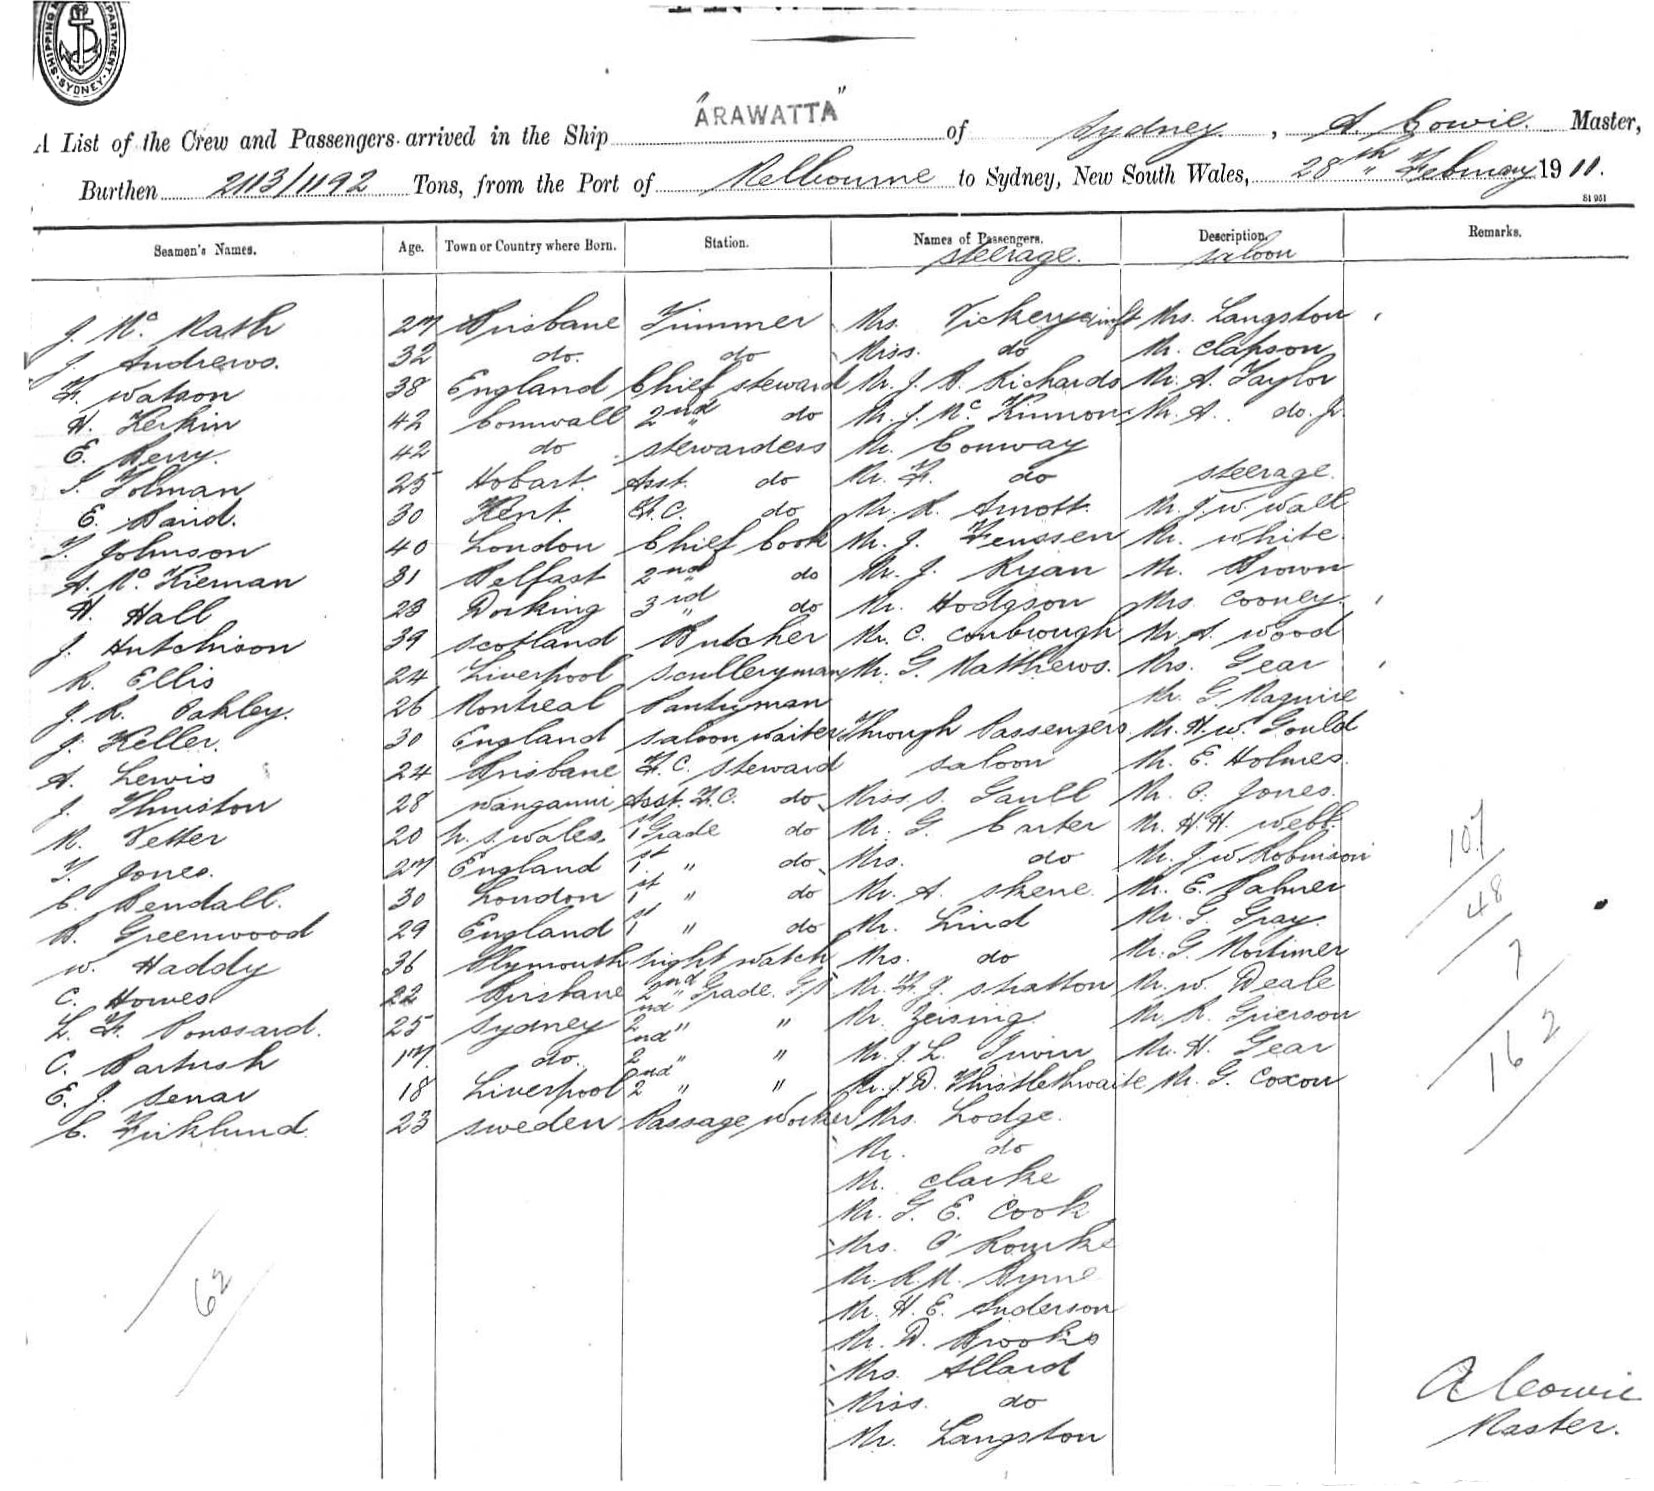 SHIPPING DEPARTMENT SYDNEY
"ARAWATTA"
A List of the Crew and Passengers arrived in the Ship of Sydney, A. Cowie. Master,
Burthen 2113/1192 Tons, from the Port of Melbourne to Sydney, New South Wales, 28th February 1911.
St 951
Seamen's Names. Age. Town or Country where Born. Station. Names of Passengers. Description. Remarks.
steerage. saloon
J. Mc. Math 27 Brisbane Trimmer Mrs. Vickery & inft Mrs. Langston
J. Andrews. 32 do. do Miss. do Mr. Clapson
F. Watson 38 England Chief steward Mr. J. B. Richards Mr. A. Taylor
H. Kerkin 42 Cornwall 2nd do Mr. J. Mc. Kinnon Mr. A. do. Jr.
E. Berry. 42 do stewardess Mr. Conway
S. Tolman 25 Hobart. Asst. do Mr. F. do steerage.
E. Baird. 30 Kent. F.C. do Mr. R. Arnott. Mr. J. W. Wall
T. Johnson 40 London Chief Cook Mr. J. Feussen Mr. White
A. Mc. Kiernan 31 Belfast 2nd do Mr. J. Ryan Mr. Brown
H. Hall 23 Dorking 3rd do Mr. Hodgson Mrs Cooney.
J. Hutchison 39 Scotland Butcher Mr. C. Conbrough Mr. A. Wood
R. Ellis 24 Liverpool Sculleryman Mr. G. Matthews. Mrs. Gear
J. R. Oakley. 26 Montreal Pantryman Mr. G. Maguire
J. Keller. 30 England saloon waiter Through Passengers Mr. H. W. Gould
A. Lewis 24 Brisbane F.C. steward saloon Mr. E. Holmes.
J. Thurston 28 Wanganui Asst. F.C. do Miss. S. Gaull Mr. O. Jones.
R. Vetter 20 N. S. Wales. 1st Grade do Mr. G. Carter Mr. H. H. Webb.
T. Jones. 27 England 1st " do Mrs. do Mr. J. W. Robinson
C. Bendall. 30 London 1st " do Mr. A. Skene. Mr. E. Palmer
B. Greenwood 29 England 1st " do Mr. Lind Mr. G. Gray.
W. Haddy 36 Plymouth night watch Mrs. do Mr. G. Mortimer
C. Howes 22 Brisbane 2nd Grade. G.S Mr. F. J. Shatton Mr. W. Deale
L. F. Ponssard. 25 Sydney 2nd " " Mr. Zeising Mr. R. Grierson
C. Bartush 17. do. 2nd " " Mr. J. L. Irwin Mr. H. Gear
E. J. Senar 18 Liverpool 2nd " " Mr. J. D. Thistlethwaite Mr. G. Coxon
C. Firklund 23 Sweden Passage worker Mrs. Lodge.
Mr. do
Mr. Clarke
Mr. G. E. Cook
Mrs. O'Rourke
Mr. R. M. Byrne
Mr. H. E. Anderson
Mr. D. Brooks
Mrs. Allard
Miss. do
Mr. Langston
62
107
48
7
162
A Cowie
Master.